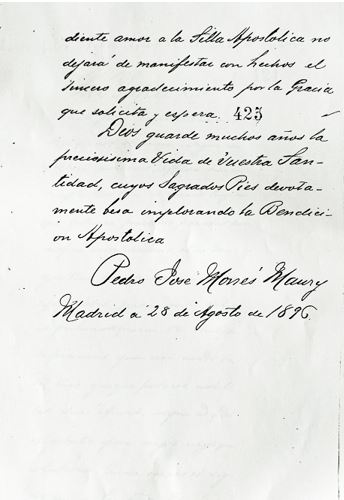 diente amor a la Silla Apostolica no
dejará de manifestar con hechos el
sincero agradecimiento por la Gracia
que solicita y espera. 423
Dios guarde muchos años la
preciosisima Vida de Vuestra San-
tidad, cuyos Sagrados Pies devota-
mente besa implorando la Bendici-
ón Apostolica
Pedro José Monsés Maury
Madrid á 28 de Agosto de 1896.